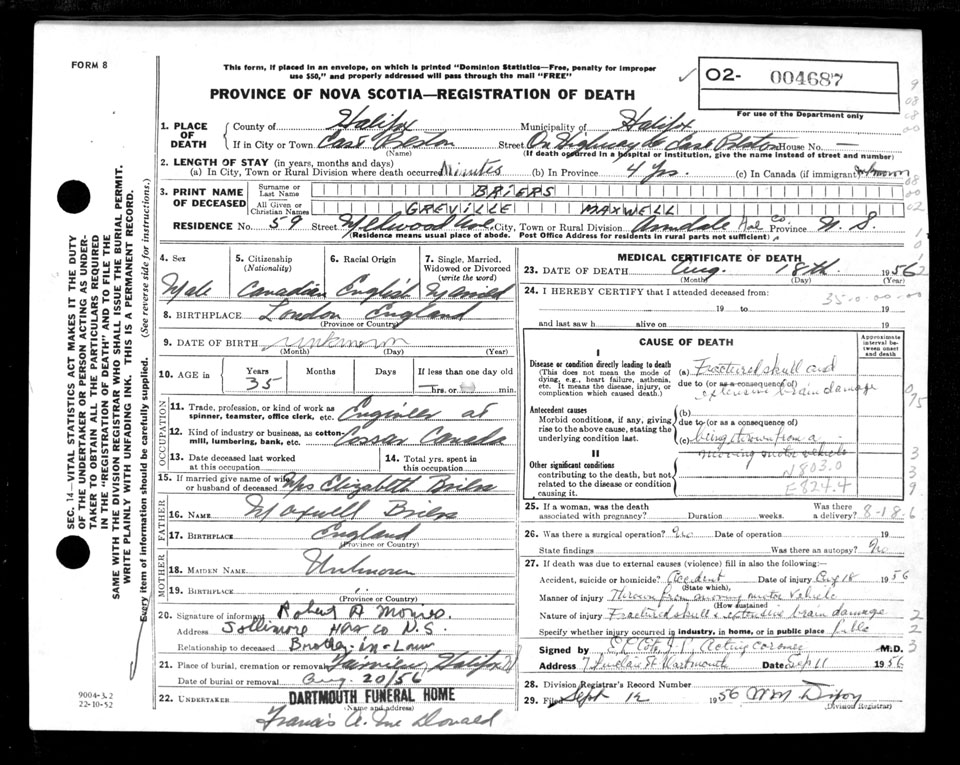 FORM 8
This form, if placed in an envelope, on which is printed "Dominion Statistics—Free, penalty for improper
use $50," and properly addressed will pass through the mail "FREE"
O2- 004687
For use of the Department only
PROVINCE OF NOVA SCOTIA—REGISTRATION OF DEATH
SEC. 14—VITAL STATISTICS ACT MAKES IT THE DUTY
OF THE UNDERTAKER OR PERSON ACTING AS UNDER-
TAKER TO OBTAIN ALL THE PARTICULARS REQUIRED
IN THE "REGISTRATION OF DEATH" AND TO FILE THE
SAME WITH THE DIVISION REGISTRAR WHO SHALL ISSUE THE BURIAL PERMIT.
WRITE PLAINLY WITH UNFADING INK. THIS IS A PERMANENT RECORD.
Every item of information should be carefully supplied. (See reverse side for instructions.)
1. PLACE OF DEATH County of Halifax Municipality of Halifax
If in City or Town East Preston Street On Highway East Preston House No. —
(Name) (If death occurred in a hospital or institution, give the name instead of street and number)
2. LENGTH OF STAY (in years, months and days)
(a) In City, Town or Rural Division where death occurred Minutes (b) In Province 4 yrs. (c) In Canada (if immigrant) unknown
3. PRINT NAME OF DECEASED Surname or Last Name BRIERS
All Given or Christian Names GREVILLE MAXWELL
RESIDENCE No. 59 Street City, Town or Rural Division Armdale Hfx Co Province N. S.
(Residence means usual place of abode. Post Office Address for residents in rural parts not sufficient)
4. Sex 5. Citizenship (Nationality) 6. Racial Origin 7. Single, Married, Widowed or Divorced (write the word)
Male Canadian English Married
8. BIRTHPLACE London England
(Province or Country)
9. DATE OF BIRTH unknown
(Month) (Day) (Year)
10. AGE in Years Months Days If less than one day old
35 hrs. or min.
OCCUPATION
11. Trade, profession, or kind of work as spinner, teamster, office clerk, etc. Engineer at
12. Kind of industry or business, as cotton-mill, lumbering, bank, etc. Cossor Canada
13. Date deceased last worked at this occupation
14. Total yrs. spent in this occupation
15. If married give name of wife or husband of deceased Mrs Elizabeth Briers
FATHER
16. NAME Maxwell Briers
17. BIRTHPLACE England
(Province or Country)
MOTHER
18. MAIDEN NAME Unknown
19. BIRTHPLACE
(Province or Country)
20. Signature of informant Robert A
Address Jollimore Hfx Co N.S.
Relationship to deceased Brother-in-Law
21. Place of burial, cremation or removal Fairview, Halifax
Date of burial or removal Aug. 20/56
22. UNDERTAKER DARTMOUTH FUNERAL HOME
(Name and address)
Francis A. Mc Donald
9004-3.2
22-10-52
MEDICAL CERTIFICATE OF DEATH
23. DATE OF DEATH Aug. 18th. 1956
(Month) (Day) (Year)
24. I HEREBY CERTIFY that I attended deceased from:
35-0-00-00
19 to 19
and last saw h alive on 19
CAUSE OF DEATH
Approximate interval between onset and death
I
Disease or condition directly leading to death
(This does not mean the mode of dying, e.g., heart failure, asthenia, etc. It means the disease, injury, or complication which caused death.)
(a) Fractured skull and
due to (or as a consequence of)
extensive brain damage
Antecedent causes
Morbid conditions, if any, giving rise to the above cause, stating the underlying condition last.
(b)
due to (or as a consequence of)
(c) being thrown from a
moving motor vehicle
II
Other significant conditions
contributing to the death, but not related to the disease or condition causing it.
N803.0
E824.4
25. If a woman, was the death associated with pregnancy? Duration weeks. Was there a delivery? 8-18-6
26. Was there a surgical operation? No Date of operation 19
State findings Was there an autopsy? No
27. If death was due to external causes (violence) fill in also the following:
Accident, suicide or homicide? Accident Date of injury Aug 18 1956
(State which)
Manner of injury Thrown from moving motor vehicle
(How sustained)
Nature of injury Fractured skull & extensive brain damage
Specify whether injury occurred in industry, in home, or in public place Public
Signed by J.P. Acting coroner M.D.
Address Dartmouth Date Sep 11 1956
28. Division Registrar's Record Number
29. Filed Sept 12 1956 Wm Dixon
(Division Registrar)